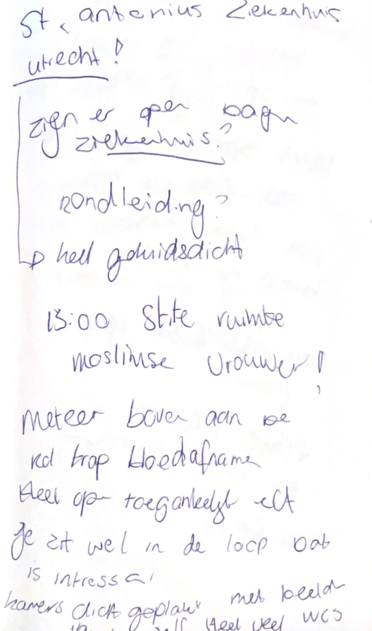 St. antonius Ziekenhuis
utrecht!
zijn er open dagen
ziekenhuis?
Rondleiding?
heel geluidsdicht
13:00 Stite ruimte
moslimse vrouwen!
meteen boven aan de
rol trap bloedafname
Heel open toegankelijk echt
Je zit wel in de loop Dat
is intressa
kamers dicht geplakt met beeld
Heel veel WCS